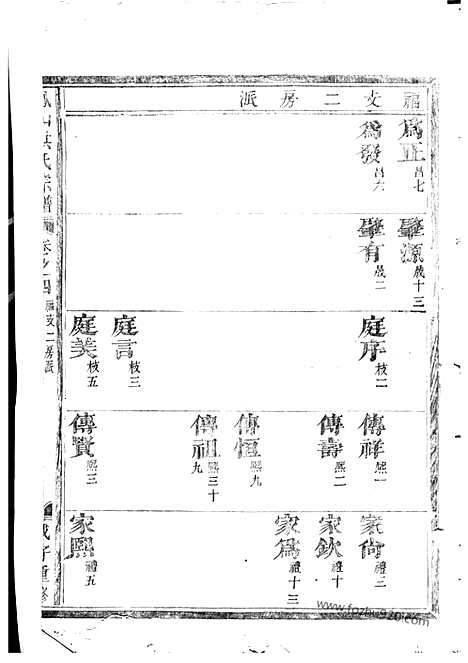 福支二房派
為正 昌七
為發 昌六
肇源 歲十三
肇有 歲二
庭序 枝二
庭言 枝三
庭美 枝五
傳祥 熙一
傳壽 熙二
傳恒 熙九
傳祖 熙三十九
傳賢 熙三
家尚 禮二
家欽 禮十
家為 禮十三
家熙 禮五
氏宗譜 卷之四 福支二房派
戊子重修
www.fozhu920.com